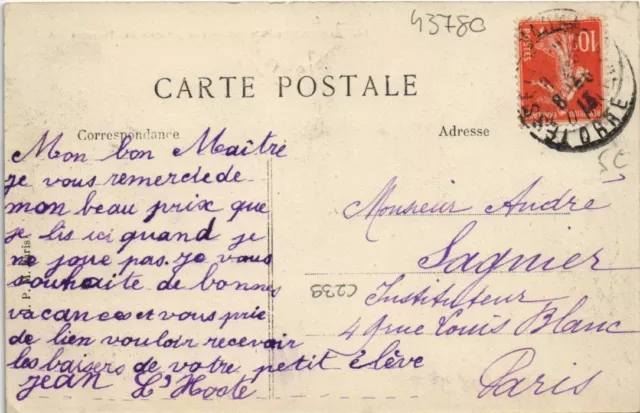 43780
CARTE POSTALE
Correspondance
Adresse
Mon bon Maître
je vous remercie de
mon beau prix que
je lis ici quand je
ne joue pas. Je vous
souhaite de bonnes
vacances et vous prie
de bien vouloir recevoir
les baisers de votre petit élève
Jean L'Hoste
Monsieur André
Sagnier
Instituteur
49 rue Louis Blanc
Paris
C239
10